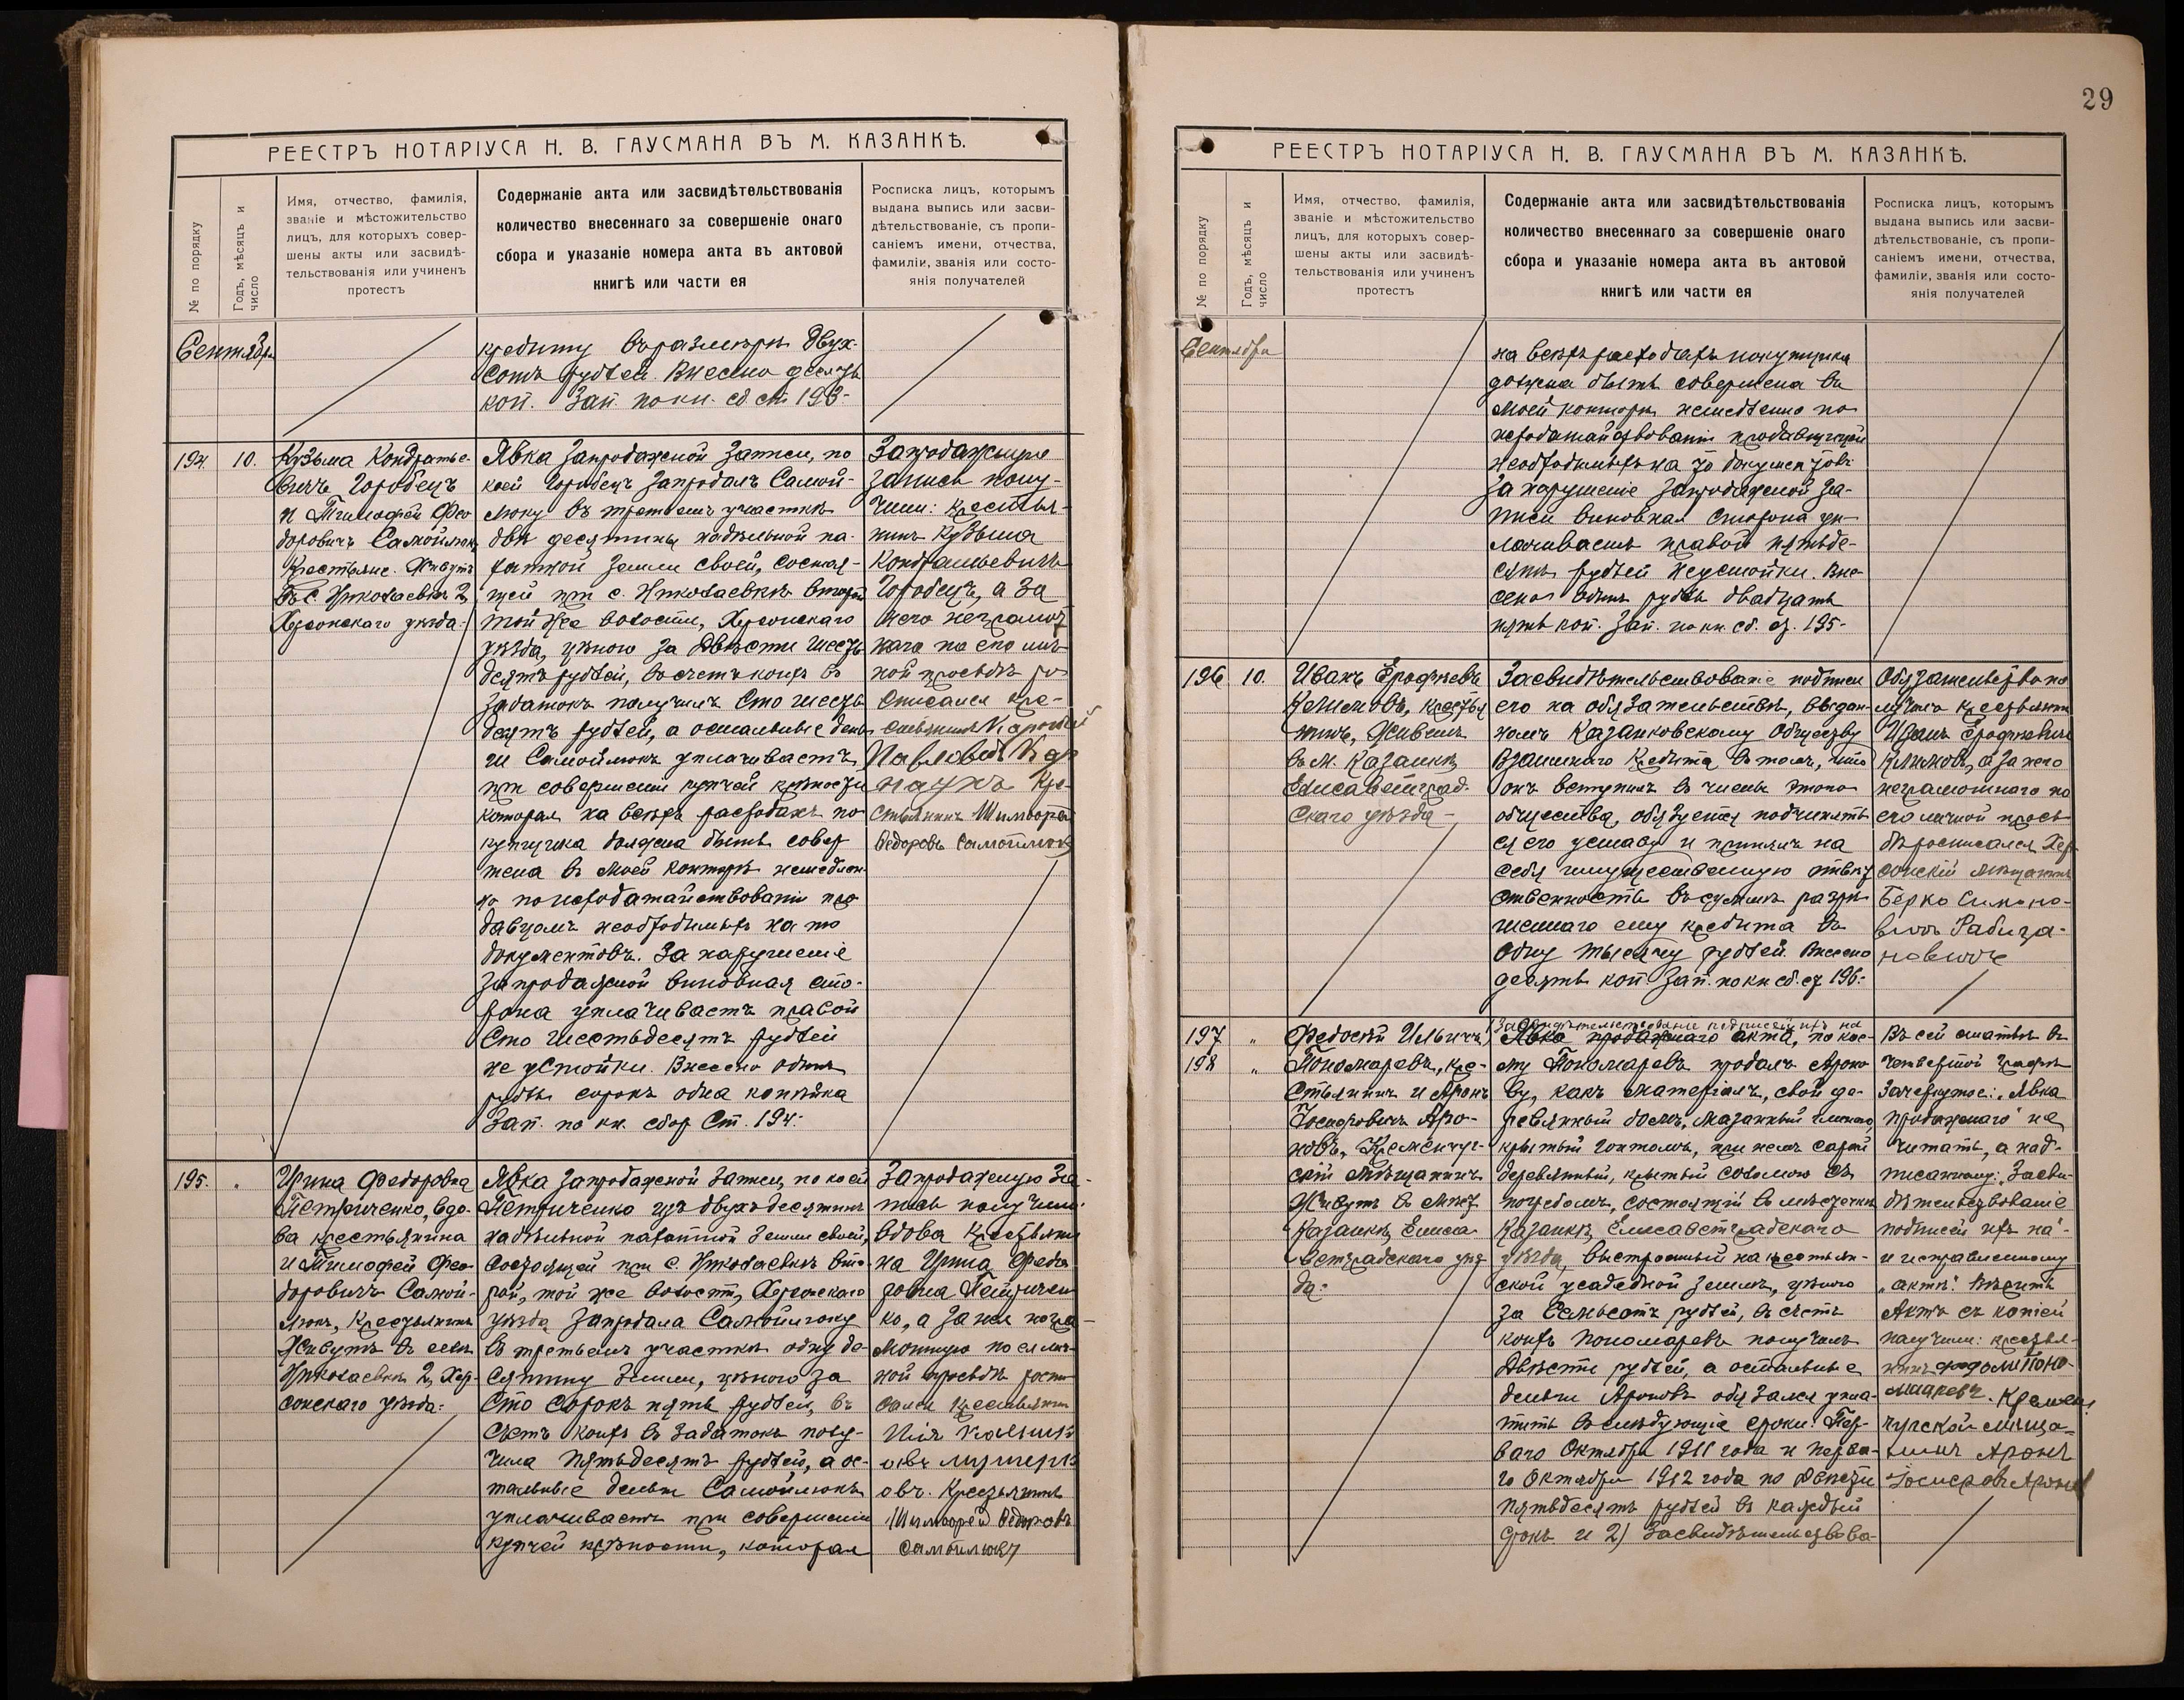 РЕЕСТРЪ НОТАРІУСА Н. В. ГАУСМАНА ВЪ М. КАЗАНКѢ.
№ по порядку
Годъ, мѣсяцъ и
число
Имя, отчество, фамилія,
званіе и мѣстожительство
лицъ, для которыхъ совер-
шены акты или засвидѣ-
тельствованія или учиненъ
протестъ
Содержаніе акта или засвидѣтельствованія
количество внесеннаго за совершеніе онаго
сбора и указаніе номера акта въ актовой
книгѣ или части ея
Росписка лицъ, которымъ
выдана выпись или засви-
дѣтельствованіе, съ пропи-
саніемъ имени, отчества,
фамиліи, званія или состо-
янія получателей
Сентября
кредиту въ размѣрѣ двух-
сотъ рублей. Внесено десять
коп. Зап. по кн. сб. ст. 193-
194. 10.
Кузьма Кондратье-
вичъ Городецъ
и Тимофей Фео
доровичъ Самойлюкъ,
Крестьяне. Живутъ
въ с. Николаевкѣ 2,
Херсонскаго уѣзда-
Явка запродажной записи, по
коей Городецъ запродалъ Самой-
люку въ третьемъ участкѣ
двѣ десятины надѣльной па-
хатной земли своей, состоя-
щей при с. Николаевкѣ второй
той же волости, Херсонскаго
уѣзда, цѣною за Двѣсти шесть
десятъ рублей, въ счетъ коихъ въ
задатокъ получилъ Сто шесть
десятъ рублей, а остальные день
ги Самойлюкъ уплачиваетъ
при совершеніи купчей крѣпости
которая на всѣхъ расходахъ по
купщика должна быть совер
шена въ моей конторѣ немедлен-
но по исходатайствованіи про
давцомъ необходимыхъ на то
документовъ. За нарушеніе
запродажной виновная сто-
рона уплачиваетъ правой
Сто шестьдесятъ рублей
неустойки. Внесено одинъ
рубль сорокъ одна копѣйка
Зап. по кн. сбор ст. 194:
Запродажную
запись полу-
чили: Крестья-
нинъ Кузьма
Кондратьевичъ
Городецъ, а за
него неграмот
наго по его лич
ной просьбѣ ро
списался Кре-
стьянинъ
Павловъ
Кре-
стьянинъ Тимофей
Федоровъ Самойлюкъ
195. "
Ирина Федоровна
Петриченко, вдо-
ва крестьянина
и Тимофей Фео-
доровичъ Самой-
люкъ, Крестьянинъ
Живутъ въ селѣ
Николаевкѣ 2, Хер-
сонскаго уѣзда-
Явка запродажной записи, по коей
Петриченко изъ двухъ десятинъ
надѣльной пахатной земли своей,
состоящей при с. Николаевкѣ вто-
рой, той же волости, Херсонскаго
уѣзда запродала Самойлюку
въ третьемъ участкѣ одну де-
сятину земли, цѣною за
Сто сорокъ пять рублей, въ
счетъ коихъ въ задатокъ полу-
чила пятьдесятъ рублей, а ос-
тальные деньги Самойлюкъ
уплачиваетъ при совершеніи
купчей крѣпости, которая
Запродажную За-
пись получили:
вдова Крестьяни
на Ирина Федо
ровна Петричен
ко, а за нея негра-
мотную по ея лич
ной просьбѣ роспи
сался Крестьянинъ
овъ. Крестьянинъ
Тимофей Федоровъ
Самойлюкъ
29
РЕЕСТРЪ НОТАРІУСА Н. В. ГАУСМАНА ВЪ М. КАЗАНКѢ.
№ по порядку
Годъ, мѣсяцъ и
число
Имя, отчество, фамилія,
званіе и мѣстожительство
лицъ, для которыхъ совер-
шены акты или засвидѣ-
тельствованія или учиненъ
протестъ
Содержаніе акта или засвидѣтельствованія
количество внесеннаго за совершеніе онаго
сбора и указаніе номера акта въ актовой
книгѣ или части ея
Росписка лицъ, которымъ
выдана выпись или засви-
дѣтельствованіе, съ пропи-
саніемъ имени, отчества,
фамиліи, званія или состо-
янія получателей
Сентября
на всѣхъ расходахъ покупщика
должна быть совершена въ
моей конторѣ немедленно по
исходатайствованіи продавщицей
необходимыхъ на то документовъ
За нарушеніе запродажной за-
писи виновная сторона уп-
лачиваетъ правой пятьде-
сятъ рублей неустойки. Вне-
сено одинъ рубль двадцать
пять коп. Зап. по кн. сб. ст. 195-
196 10.
Иванъ Ерофѣевъ
Климовъ, крестья
нинъ, Живетъ
въ м. Казанкѣ
Елисаветград-
скаго уѣзда-
Засвидѣтельствованіе подписи
его на обязательствѣ, выдан-
номъ Казанковскому Обществу
Взаимнаго Кредита въ томъ, что
онъ вступилъ въ члены этого
общества, обязуется подчинять
ся его уставу и принялъ на
себя имущественную отвѣт
ственность въ суммѣ разрѣ
шеннаго ему кредита въ
одну тысячу рублей. Внесено
десять коп. Зап. по кн. сб. ст. 196-
Обязательство по
лучилъ Крестьянинъ
Иванъ Ерофѣевичъ
Климовъ, а за него
неграмотнаго по
его личной прось
бѣ росписался Хер
сонскій мѣщанинъ
Берко Симоно-
вичъ Рабина-
новичъ
197 "
198 "
Федосѣй Ильичъ
Пономаревъ, кре-
стьянинъ и Аронъ
Іосифовичъ Аро-
новъ, Кременчуг-
скій мѣщанинъ
Живутъ въ мѣст
Казанкѣ, Елиса-
ветградскаго уѣз
да-
1) Засвидѣтельствованіе подписей ихъ на
Явка продажнаго акта, по кое-
му Пономаревъ продалъ Ароно
ву, какъ матеріалъ, свой де-
ревянный домъ, мазанный глиною,
крытый гонтомъ, при немъ сарай
деревянный, крытый соломою съ
погребомъ, состоящій въ мѣстечкѣ
Казанкѣ, Елисаветградскаго
уѣзда, выстроенный на крестьян-
ской усадебной землѣ, цѣною
за Семьсотъ рублей, въ счетъ
коихъ Пономаревъ получилъ
Двѣсти рублей, а остальные
деньги Ароновъ обязался упла-
тить въ слѣдующіе сроки: Пер-
ваго Октября 1911 года и перва-
го Октября 1912 года по Двѣсти
пятьдесятъ рублей въ каждый
срокъ и 2) Засвидѣтельствова-
Въ сей статьѣ въ
четвертой графѣ
зачеркнутое: „Явка
продажнаго" не
читать, а над-
писанному: „Засви-
дѣтельствованіе
подписей ихъ на"-
и исправленному
„актѣ". вѣрить
Актъ съ копіей
получили: крестья-
нинъ Поно-
маревъ. Кремен
чугской мѣща-
нинъ Аронъ
Іосифовъ Ароновъ